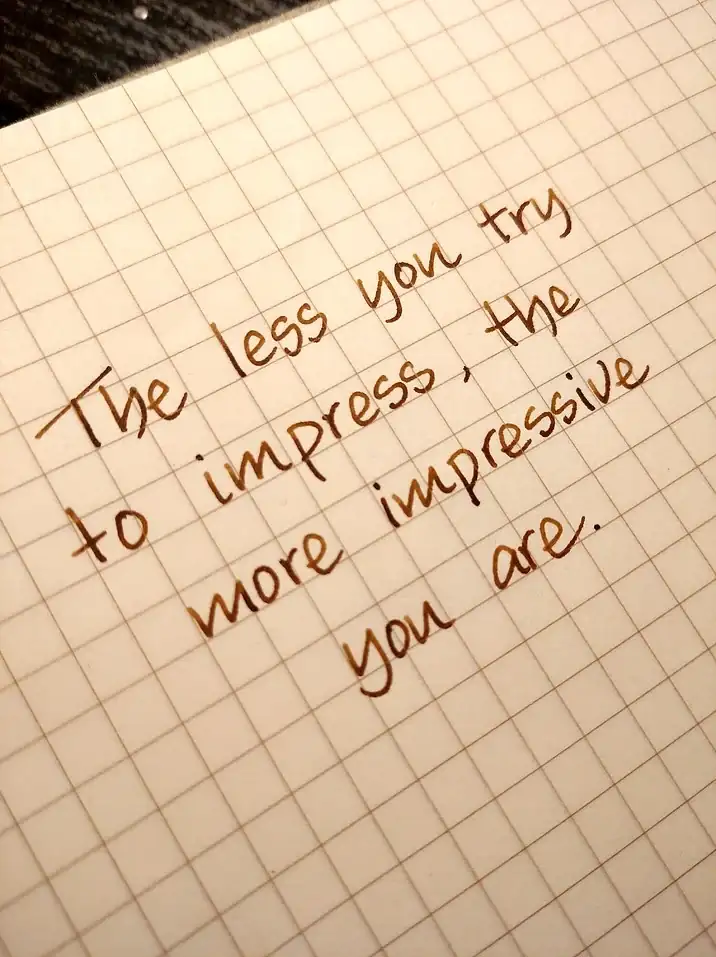 The less you try
to impress, the
more impressive
you are.